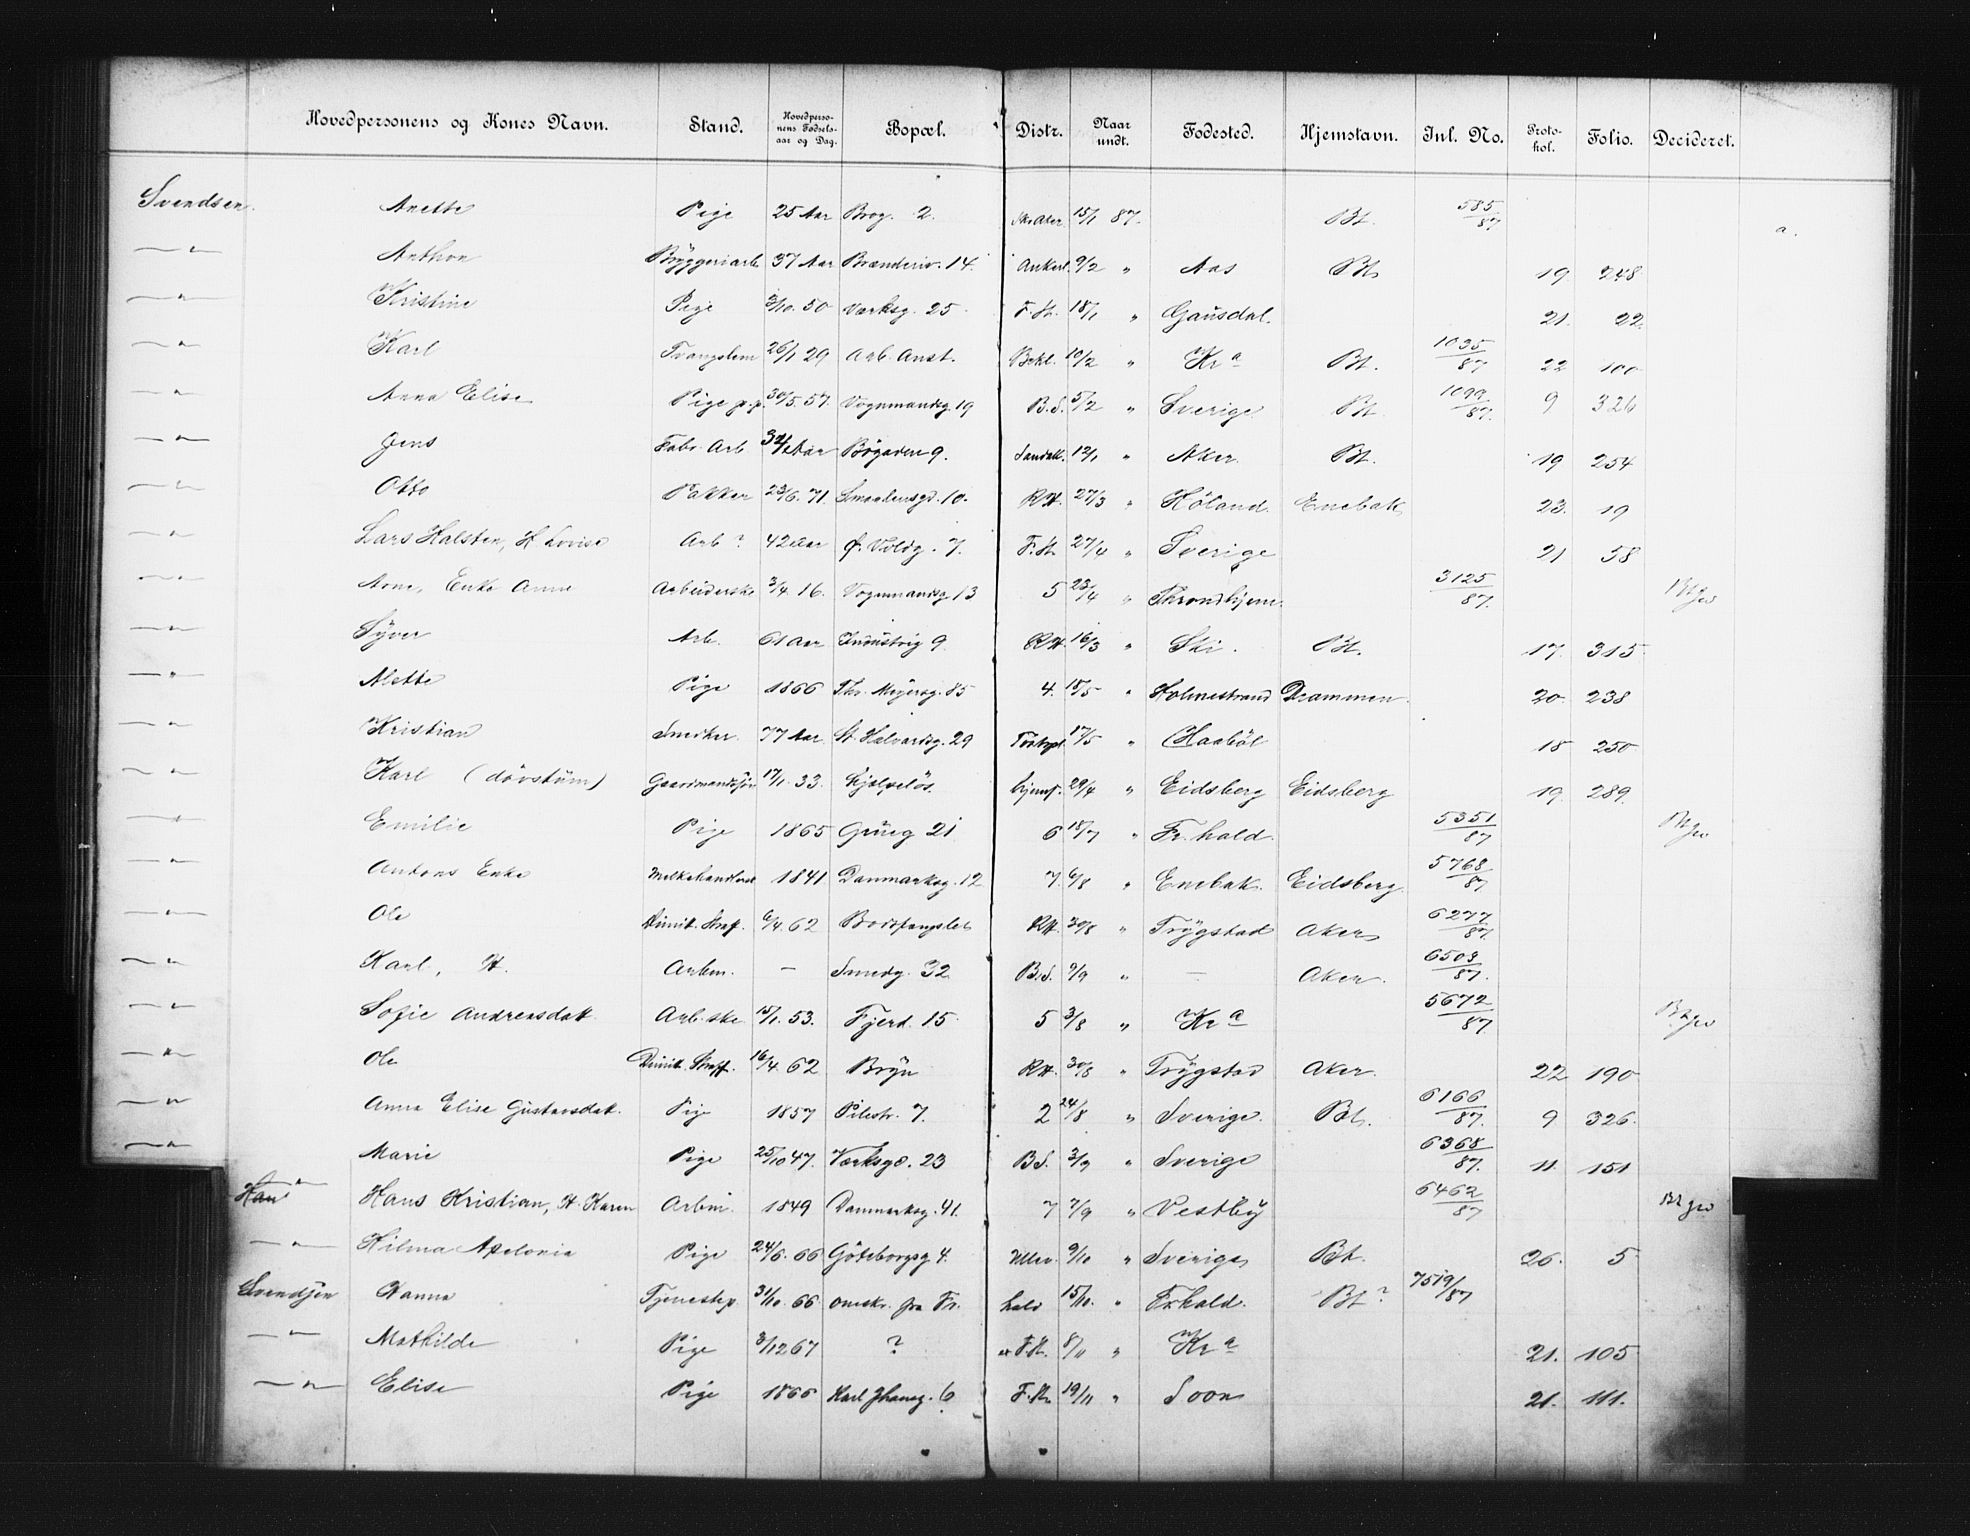 Hovedpersonens og Kones Navn. Stand. Hovedpersonens Fødselsaar og Dag. Bopæl. Distr. Naar undt. Fødested. Hjemstavn. Inl. No. Protokol. Folio. Decideret.
Svendsen. Anette Pige 25 Aar Brog. 2. 15/1 87. Bt. 585/87 a.
—"— Anthon Bryggeriarb 37 Aar Brænderiv. 14. Ankerl. 9/2 " Aas Bt. 19. 248
—"— Kristine Pige 50 Værksg. 25. F.K. 18/1 " Gausdal. 21. 22.
—"— Karl Tvangslem 26/1 29 Arb. Anst. 10/2 " Kra Bt. 1035/87 22 100
—"— Anna Elise Pige p.p. 30/5. 57. Vognmandsg 19 B.S. 5/2 " Sverige Bt. 1099/87. 9 326
—"— Jens Fabr. Arb Aar Bøgaden 9. 12/1 " Aker. Bt. 19 254
—"— Otto Pakker 23/6. 71. Smaalensgd. 10. RH. 27/3 " Høland. Enebak 23. 19
—"— Lars Halsten, H. Lovise Arb? 42 Aar Ø. Voldg. 7. F.K. 27/4 " Sverige 21 58
—"— Arne, Enke Anne Arbeiderske 3/4. 16. Vognmandsg 13 5 23/4 " Throndhjem. 3125/87.
—"— Syver Arb. 61 Aar Industrig 9. RH. 16/3 " Ski. Bt. 17. 315.
—"— Alette Pige 1866 Thv. Meyersg. 85 4. 18/5 " Holmestrand Drammen. 20. 238
—"— Kristian Snedker. 77 Aar St. Halvardsg. 29 17/5 " Haabøl 18 250
—"— Karl (døvstum) Gaardmandssøn 17/1. 33. Hjælpeløs. hjemf. 29/4 " Eidsberg Eidsberg 19. 289.
—"— Emilie Pige 1865 Grüng 21 6 18/7 " Fr.hald. 5351/87
—"— Antons Enke Melkehandlerske 1841 Danmarksg. 12 7. 6/8 " Enebak. Eidsberg. 5768/87
—"— Ole Dimit. Straf. 6/4. 62 Bodsfængslet RH. 30/8 " Trygstad Aker 6277/87.
—"— Karl, H. Arbm. — Smedg. 32 B.S. 9/9 " — Aker. 6503/87.
—"— Sofie Andreasdat. Arb.ske 15/1. 53. Fjerd. 15. 5 3/8 " Kra 5672/87.
—"— Ole Dimit. Straff. 16/4. 62 Bryn RH. 30/8 " Trygstad Aker. 22 190
—"— Anna Elise Gustavsdat. Pige 1857 Pilestr. 7. 2 24/8 " Sverige. Bt. 6166/87. 9 326.
—"— Marie Pige 25/10 47. Værksgd. 23 B.S. 3/9 " Sverige 6368/87. 11. 151
—"— Hans Kristian, H. Karen Arbm. 1849 Danmarksg. 41. 7 7/9 " Vestby 6462/87
—"— Hilma Apelonia Pige 24/6. 66 Göteborgsg 4. Ullev. 9/10 " Sverige Bt. 26. 5
Svendsen Hanna Tjenestep. 31/10. 66. omskr. fra Fr. hald 15/10. " Frhald. Bt? 7519/87
—"— Mathilde Pige 3/12 67 ? F.K. 8/11 " Kra 21. 105
—"— Elise Pige 1866 Karl Johansg. 6 F.K. 19/11 " Soon 21. 111.